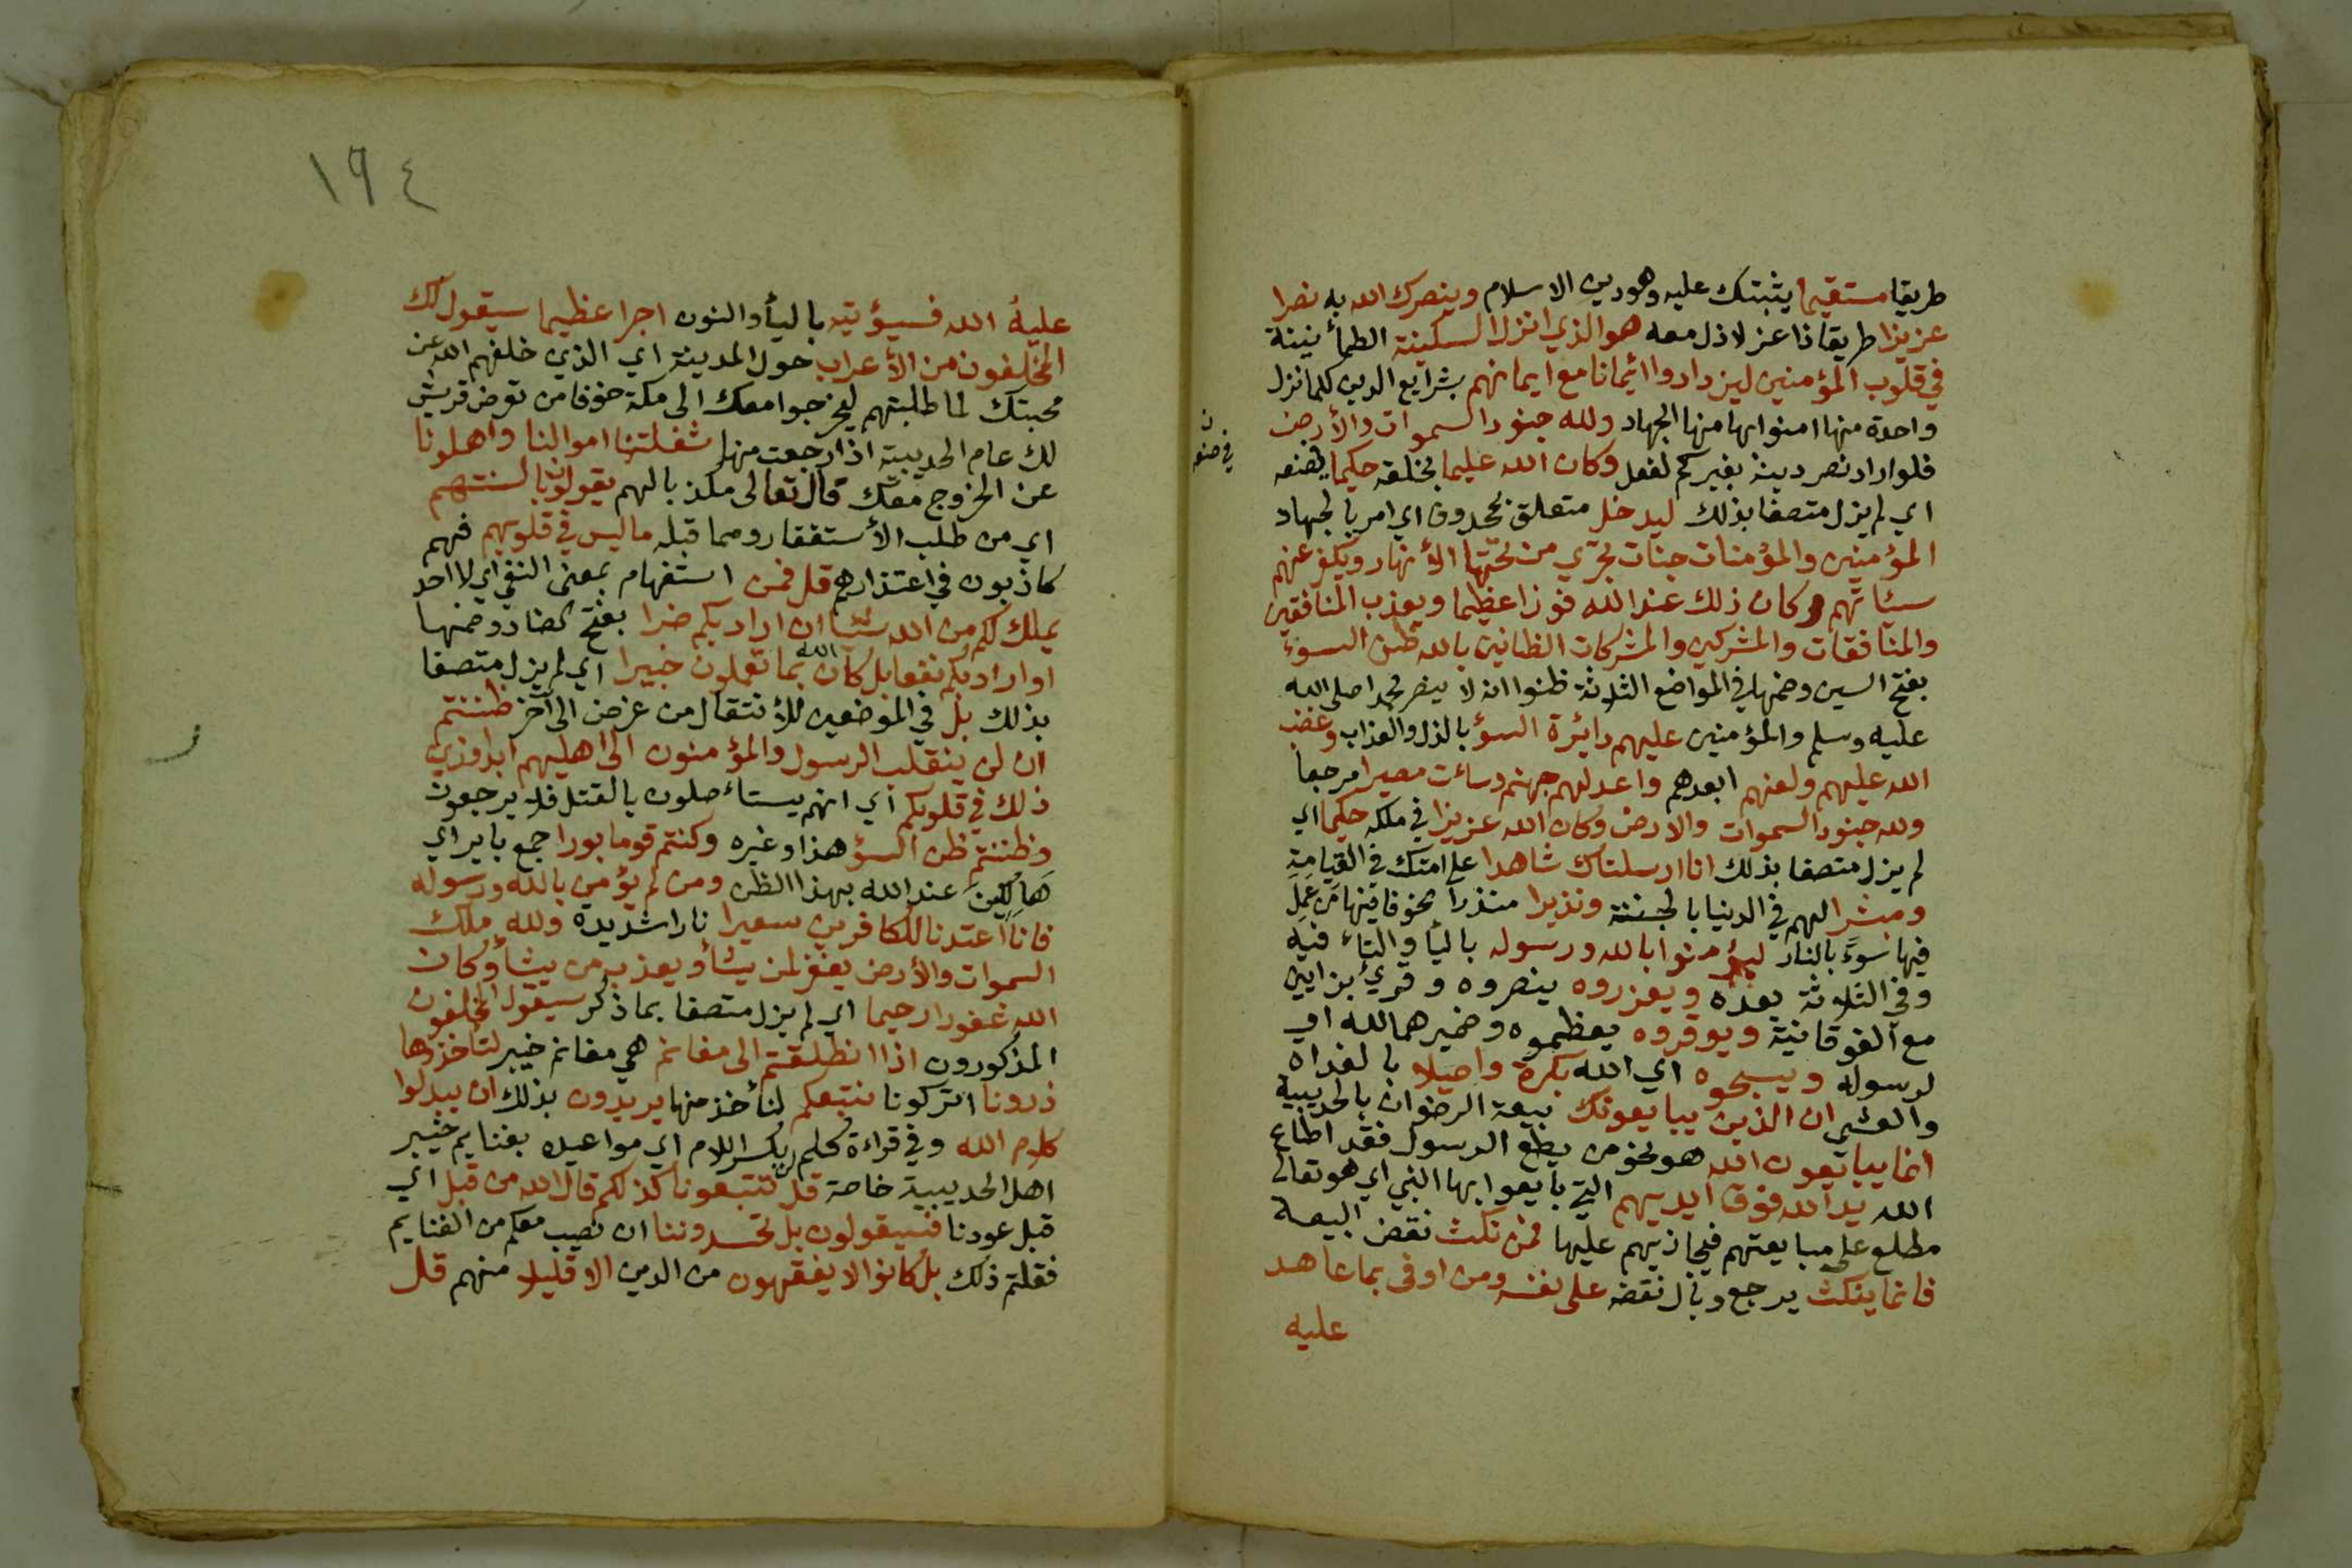 طريقا مستقيما يثبتك عليه وهو دين الاسلام وينصرك الله به نصرا
عزيزا طريقا ذا عز لا ذل معه هو الذي انزل السكينة الطمأنينة
في قلوب المؤمنين ليزدادوا ائيمانا مع ايمانهم بشرايع الدين كلما نزل
واحدة منها امنوا بها منها الجهاد ولله جنود السموات والأرض
فلو اراد نصر دينه بغيركم لفعل وكان الله عليما بخلقه حكيما بصنعه
في صنعه ن
اي لم يزل متصفا بذلك ليدخل متعلق بمحذوف اي امر بالجهاد
المؤمنين والمؤمنات جنات تجري من تحتها الأنهار ويكفر عنهم
سيئاتهم وكان ذلك عند الله فوزا عظيما ويعذب المنافقين
والمنافقات والمشركين والمشركات الظانين بالله ظن السوء
بفتح السين وضمها في المواضع الثلاثة ظنوا انه لا ينصر محمدا صلى الله
عليه وسلم والمؤمنين عليهم دائرة السؤ بالذل والعذاب وغضب
الله عليهم ولعنهم ابعدهم واعد لهم جهنم وساءت مصيرا مرجعا
ولله جنود السموات والارض وكان الله عزيزا في ملكه حكيما اي
لم يزل متصفا بذلك انا ارسلناك شاهدا على امتك في القيامة
ومبشرا لهم في الدنيا بالجنة ونذيرا منذرا مخوفا فيها من عمل
فيها سوءً بالنار ليؤمنوا بالله ورسوله باليأ والتاء فيه
وفي الثلاثة بعده ويعزروه ينصروه وقرئ بزايين
مع الفوقانية ويوقروه يعظموه وضميرهما لله او
لرسوله ويسبحوه اي الله بكرة واصيلا بالغداه
والعشي ان الذين يبايعونك بيعة الرضوان بالحديبية
انما يبايعون الله هو نحو من يطع الرسول فقد اطاع
الله يد الله فوق ايديهم التي بايعوا بها النبي اي هو تعالى
مطلع على مبايعتهم فيجازيهم عليها فمن نكث نقض البيعة
فانما ينكث يرجع وبال نقضه على نفسه ومن اوفى بما عاهد
عليه
١٩٤
عليه الله فسيؤتيه باليأ والنون اجرا عظيما سيقول لك
المخلفون من الأعراب حول المدينة اي الذي خلفهم الله عن
محبتك لما طلبتهم ليخرجوا معك الى مكة خوفا من تعرض قريش
لك عام الحديبية اذا رجعت منها شغلتنا اموالنا واهلونا
عن الخروج معك قال تعالى مكذبا لهم يقولون بالسنتهم
اي من طلب الأستغفار ومما قبله ما ليس في قلوبهم فهم
كاذبون في اعتذارهم قل فمن استفهام بمعنى النفي اي لا احد
يملك لكم من الله شيئا ان اراد بكم ضرا بفتح الضاد وضمها
او اراد بكم نفعا بل كان الله بما تعملون خبيرا اي لم يزل متصفا
بذلك بل في الموضعين للأنتقال من غرض الى آخر ظننتم
ان لن ينقلب الرسول والمؤمنون الى اهليهم ابدا وزين
ذلك في قلوبكم اي انهم يستاءصلون بالقتل فلا يرجعون
وظننتم ظن السؤ هذا وغيره وكنتم قوما بورا جمع باير اي
هالكين عند الله بهذا الظن ومن لم يؤمن بالله ورسوله
فانا اعتدنا للكافرين سعيرا نارا شديدة ولله ملك
السموات والأرض يغفر لمن يشأ ويعذب من يشأ وكان
الله غفورا رحيما اي لم يزل متصفا بما ذكر سيقول المخلفون
المذكورون اذا انطلقتم الى مغانم هي مغانم خيبر لتأخذوها
ذرونا اتركونا نتبعكم لنأخذ منها يريدون بذلك ان يبدلوا
كلام الله وفي قراءة كلم بكسر اللام اي مواعيده بغنايم خيبر
اهل الحديبية خاصة قل لن تتبعونا كذلكم قال الله من قبل اي
قبل عودنا فسيقولون بل تحسدوننا ان نصيب معكم من الغنايم
فقلتم ذلك بل كانوا لا يفقهون من الدين الا قليلا منهم قل